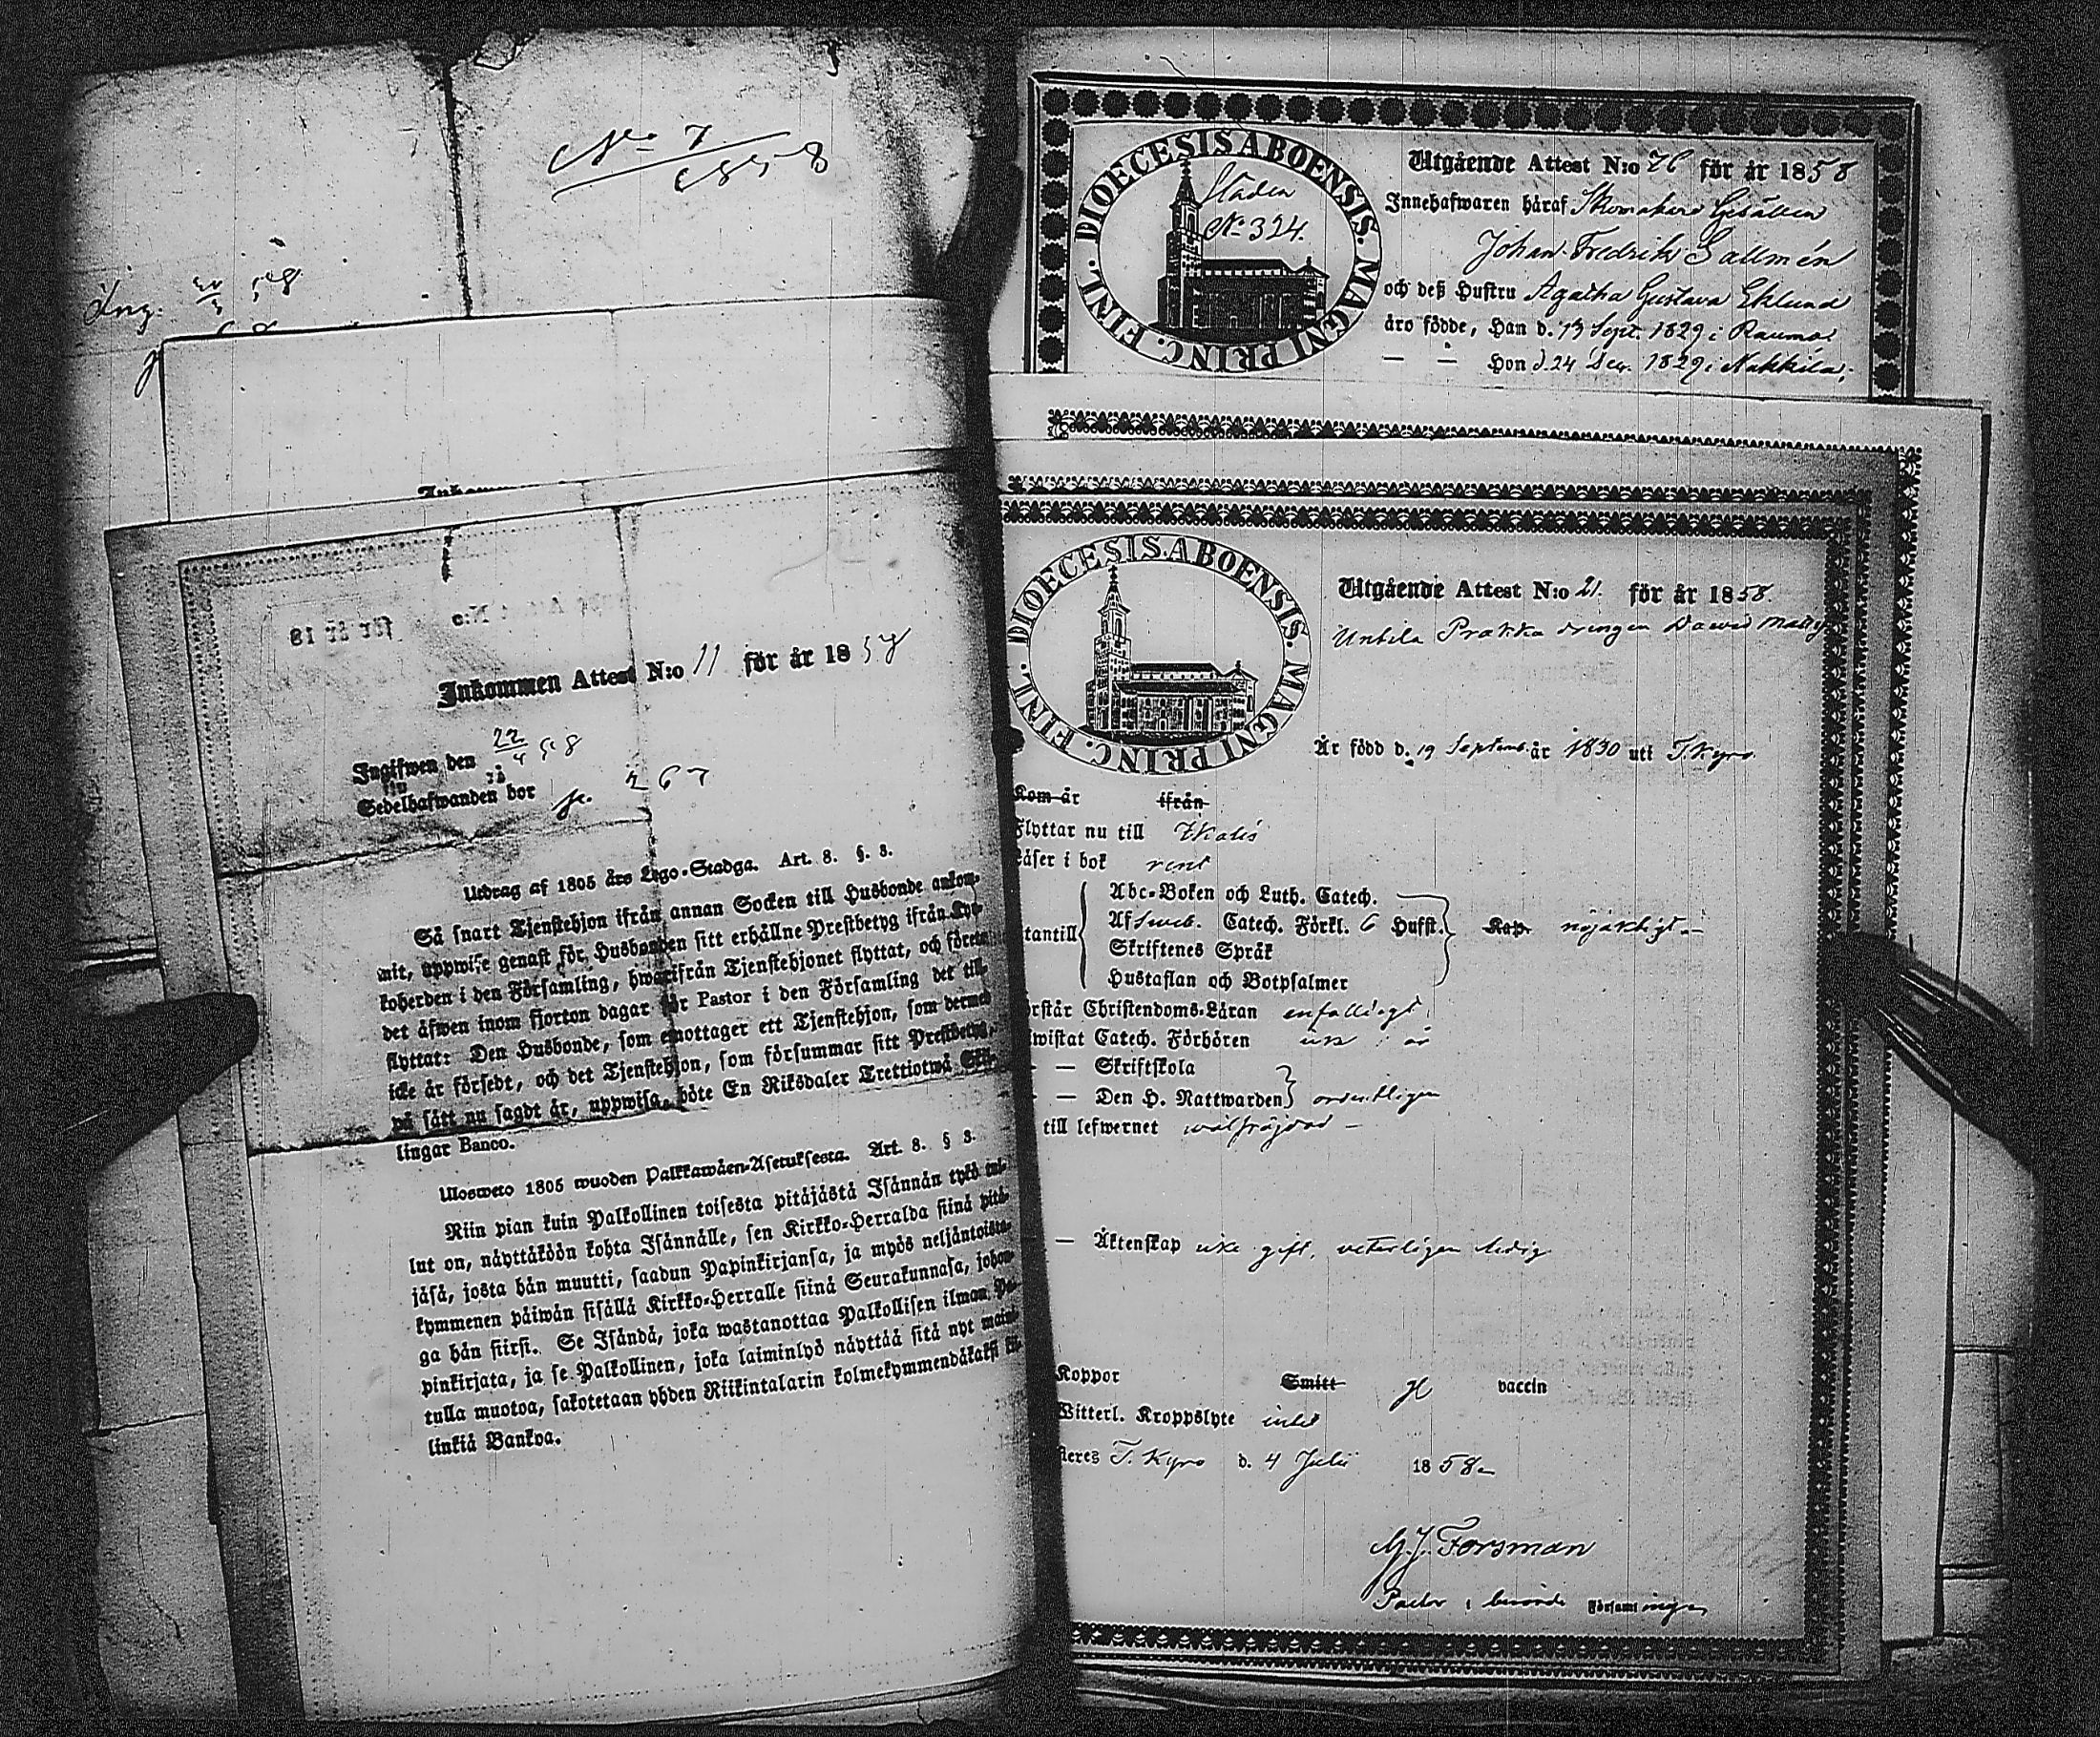 No 7
1858
Ing.
Inkommen Attest N:o 11 för år 1858
Ingifwen den 22/4 58
Sedelhafwanden bor på
267
Utdrag af 1805 års Lego-Stadga. Art. 8. §. 8.
Så snart Tjenstehjon ifrån annan Socken till Husbonde ankom-
mit, uppwise genast för Husbonden sitt erhållne Prestbetyg ifrån Kyr-
koherden i den Församling, hwarifrån Tjenstehjonet flyttat, och förete
det äfwen inom fjorton dagar för Pastor i den Församling det till-
flyttat: Den Husbonde, som emottager ett Tjenstehjon, som dermed
icke är försedt, och det Tjenstehjon, som försummar sitt Prestbetyg,
på sätt nu sagdt är, uppwisa, böte En Riksdaler Trettiotwå Skil-
lingar Banco.
Ulosweto 1805 wuoden Palkkawäen-Asetuksesta. Art. 8. § 8.
Niin pian kuin Palkollinen toisesta pitäjästä Isännän tykö tul-
lut on, näyttäköön kohta Isännälle, sen Kirkko-Herralda siinä pitä-
jäsä, josta hän muutti, saadun Papinkirjansa, ja myös neljäntoista-
kymmenen päiwän sisällä Kirkko-Herralle siinä Seurakunnasa, johon-
ga hän siirsi. Se Isändä, joka wastanottaa Palkollisen ilman Pa-
pinkirjata, ja se Palkollinen, joka laiminlyö näyttää sitä nyt maini-
tulla muotoa, sakotetaan yhden Riikintalarin kolmekymmendäkaksi kil-
linkiä Bankoa.
DIOECESIS ABOENSIS. MAGNI PRINC. FINL.
Staden
No 324.
Utgående Attest N:o 76 för år 1858
Innehafwaren häraf Skomakare Gesällen
Johan Fredrik Sallmén
och deß Hustru Agatha Gustava Eklund
äro födde, Han d. 13 Sept. 1829 i Raumo
— — Hon d. 24 Dec. 1829 i Nakkila;
DIOECESIS ABOENSIS. MAGNI PRINC. FINL.
Utgående Attest N:o 21. för år 1858
drengen David
Är född d. 19 Septemb. år 1830 uti T.Kyro
Kom år ifrån
Flyttar nu till
Läser i bok rent
Abc-Boken och Luth. Catech.
Af Sweb. Catech. Förkl. 6 Hufst. Kap. nöjaktigt
utantill Skriftenes Språk
Hustaflan och Botpsalmer
Förstår Christendoms-Läran enfaldigt
Bewistat Catech. Förhören
— Skriftskola
— Den H. Nattwarden ordentligen
till lefwernet wälfräjdad —
— Äktenskap icke gift, veterligen ledig
Koppor Smitt vaccin
Witterl. Kroppslyte intet
T. Kyro d. 4 Julii 1858
M. J. Forsman
Pastor i berörde Församlingen